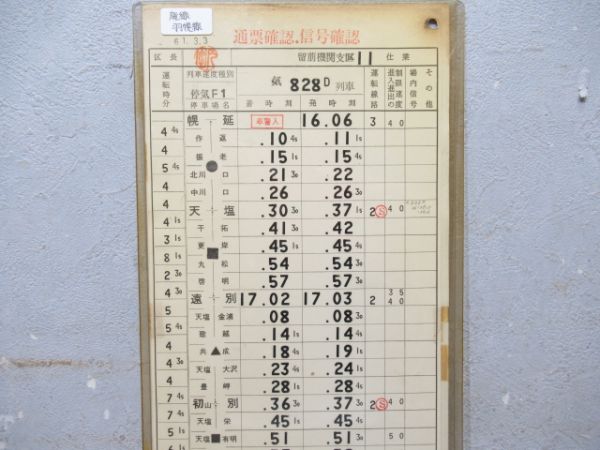 羽幌線
61.3.3
通票確認.信号確認
区長 留萌機関支区 11 仕業
運転時分 列車速度種別 停気F1 停車場名 気 828D 列車 着時刻 発時刻 運転線路 制限速度 進入進出の 場内信号 その他
幌延 16.06 3 40
4 4s 作返 .10 4s .11 1s
4 振老 .15 1s .15 4s
5 4s 北川口 .21 3o .22
4 中川口 .26 .26 3o
4 天塩 .30 3o .37 1s 2 S 40
4 1s 干拓 .41 3o .42
3 1s 更岸 .45 1s .45 4s
8 1s 丸松 .54 .54 3o
2 3o 啓明 .57 .57 3o
4 遠別 17.02 17.03 2 35 40
5 天塩金浦 .08 .08 3o
5 4s 歌越 .14 .14 1s
4 共成 .18 4s .19 1s
4 3o 天塩大沢 .23 4s .24
4 豊岬 .28 1s .28 4s
7 4s 初山別 .36 3o .37 3o 2 S 40
7 4s 天塩栄 .45 1s .45 4s
5 1s 天塩有明 .51 .51 3o 50
6 1s